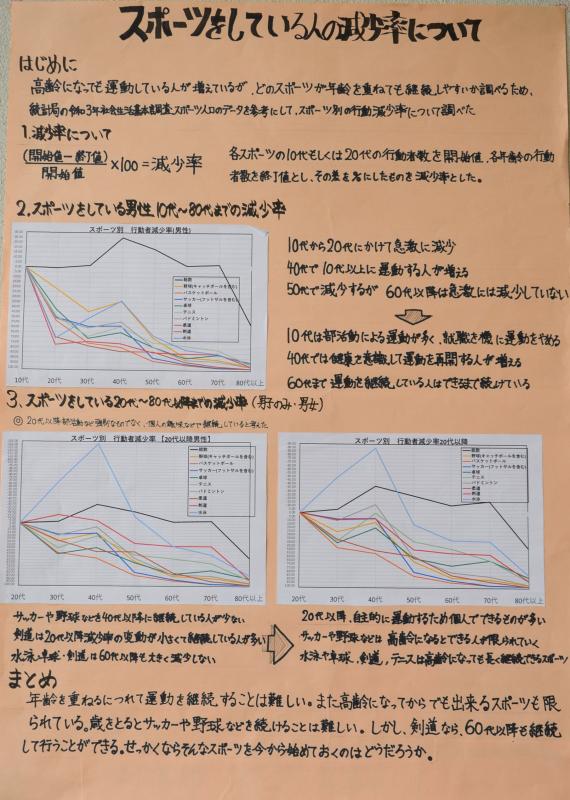 スポーツをしている人の減少率について
はじめに
高齢になっても運動している人が増えているが、どのスポーツが年齢を重ねても継続しやすいか調べるため、
統計局の令和3年社会生活基本調査スポーツ人口のデータを参考にして、スポーツ別の行動減少率について調べた
1.減少率について
(開始値ー終了値)
開始値
×100=減少率
各スポーツの10代もしくは20代の行動者数を開始値、各年齢の行動
者数を終了値とし、その差を%にしたものを減少率とした。
2.スポーツをしている男性10代〜80代までの減少率
スポーツ別 行動者減少率(男性)
総数
野球(キャッチボールを含む)
バスケットボール
サッカー(フットサルを含む)
卓球
テニス
バドミントン
柔道
剣道
水泳
10代 20代 30代 40代 50代 60代 70代 80代以上
10代から20代にかけて急激に減少
40代で10代以上に運動する人が増える
50代で減少するが 60代以降は急激には減少していない
10代は部活動による運動が多く、就職を機に運動をやめる
40代では健康を意識して運動を再開する人が増える
60代まで運動を継続している人はできるまで続けている
3.スポーツをしている20代〜80代以降までの減少率(男子のみ・男女)
◎20代以降部活動など強制なものでなく、個人の趣味などで継続していると考えた
スポーツ別 行動者減少率【20代以降男性】
総数
野球(キャッチボールを含む)
バスケットボール
サッカー(フットサルを含む)
卓球
テニス
バドミントン
柔道
剣道
水泳
20代 30代 40代 50代 60代 70代 80代以上
スポーツ別 行動者減少率20代以降
総数
野球(キャッチボールを含む)
バスケットボール
サッカー(フットサルを含む)
卓球
テニス
バドミントン
柔道
剣道
水泳
20代 30代 40代 50代 60代 70代 80代以上
サッカーや野球などを40代以降に継続している人が少ない
剣道は20代以降減少率の変動が小さくて継続している人が多い
水泳と卓球・剣道は60代以降も大きく減少しない
20代以降、自主的に運動するため個人でできるものが多い
サッカーや野球などは 高齢になるとできる人が限られていく
水泳や卓球、剣道、テニスは高齢になっても長く継続できるスポーツ
まとめ
年齢を重ねるにつれて運動を継続することは難しい。また高齢になってからでも出来るスポーツも限
られている。歳をとるとサッカーや野球などを続けることは難しい。しかし、剣道なら、60代以降も継続
して行うことができる。せっかくならそんなスポーツを今から始めておくのはどうだろうか。